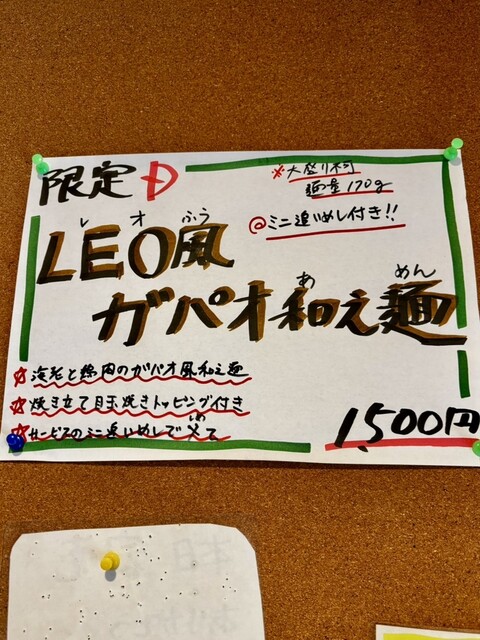 限定 D
※大盛り不可
麺量170g
@ミニ追いめし付き!!
レオ ふう
LEO風
あ めん
ガパオ和え麺
☆海老と鶏肉のガパオ風和え麺
☆焼き立て目玉焼きトッピング付き
☆サービスのミニ追いめしで〆て
1,500円